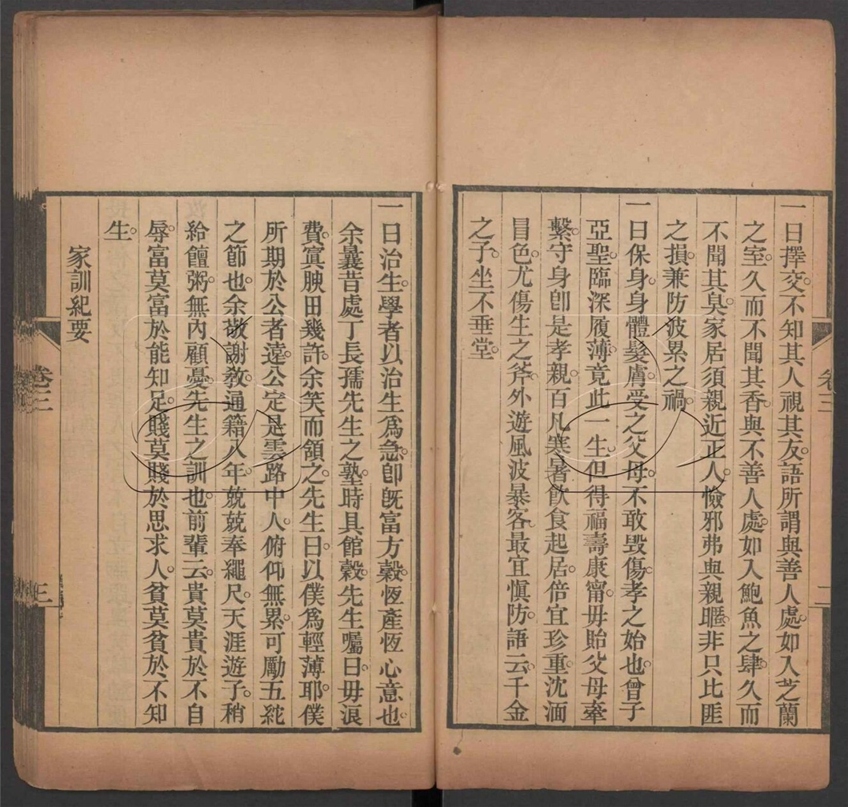 一曰擇交不知其人視其友語所謂與善人處如入芝蘭
之室久而不聞其香與不善人處如入鮑魚之肆久而
不聞其臭家居須親近正人憸邪弗與親暱非只比匪
之損兼防波累之禍
一曰保身身體髮膚受之父母不敢毀傷孝之始也曾子
亞聖臨深履薄竟此一生但得福壽康甯毋貽父母牽
繫守身卽是孝親百凡寒暑飲食起居倍宜珍重沈湎
冒色尤傷生之斧外遊風波暴客最宜慎防語云千金
之子坐不垂堂
卷三
二
一曰治生學者以治生爲急卽旣富方穀恆產恆心意也
余曩昔處丁長孺先生之塾時具館穀先生囑曰毋浪
費寘腴田幾許余笑而領之先生曰以僕爲輕薄耶僕
所期於公者遠公定是雲路中人俯仰無累可勵五紽
之節也余敬謝教通籍八年兢兢奉繩尺天涯遊子稍
給饘粥無內顧憂先生之訓也前輩云貴莫貴於不自
辱富莫富於能知足賤莫賤於思求人貧莫貧於不知
生
家訓紀要
卷三
三